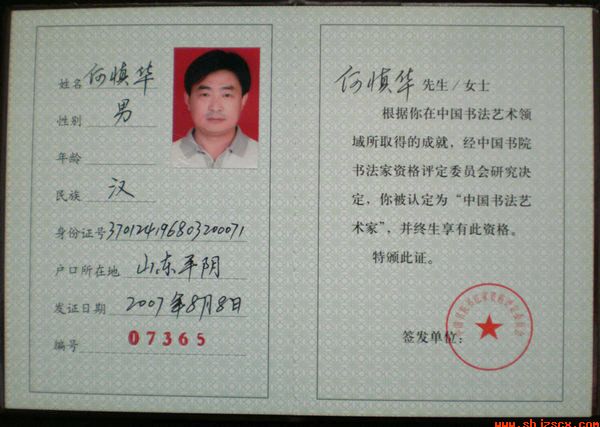 姓名 何慎华
性别 男
年龄
民族 汉
身份证号 370124196803200071
户口所在地 山东平阴
发证日期 2007年8月8日
编号 07365
何慎华 先生/女士
根据你在中国书法艺术领
域所取得的成就，经中国书院
书法家资格评定委员会研究决
定，你被认定为“中国书法艺
术家”，并终生享有此资格。
特颁此证。
签发单位：
www.shjzscx.com